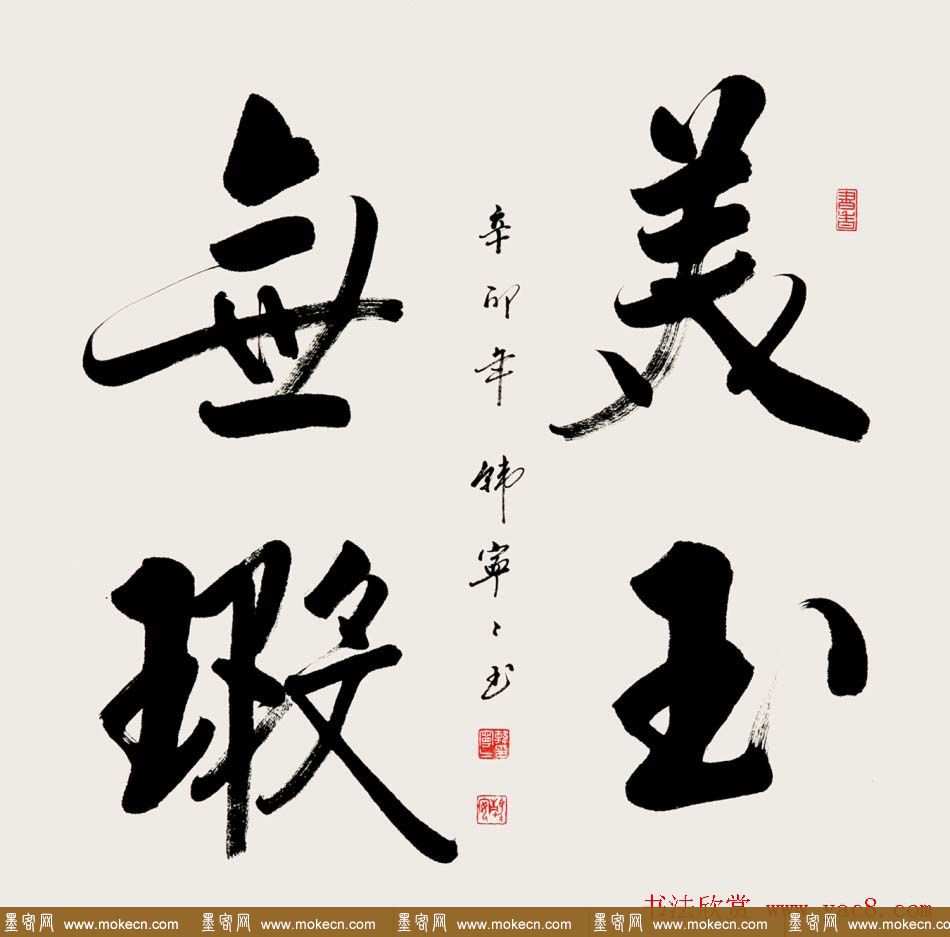 書香
美玉
無瑕
辛卯年 韩寧〻书
书法欣赏 www.yac8.com
墨客网 www.mokecn.com 墨客网 www.mokecn.com 墨客网 www.mokecn.com 墨客网 www.mokecn.com 墨客网 www.mokecn.co